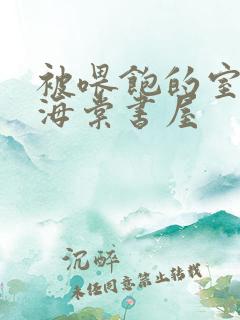 被喂饱的室
海棠书屋
沉醉
未经同意禁止转载